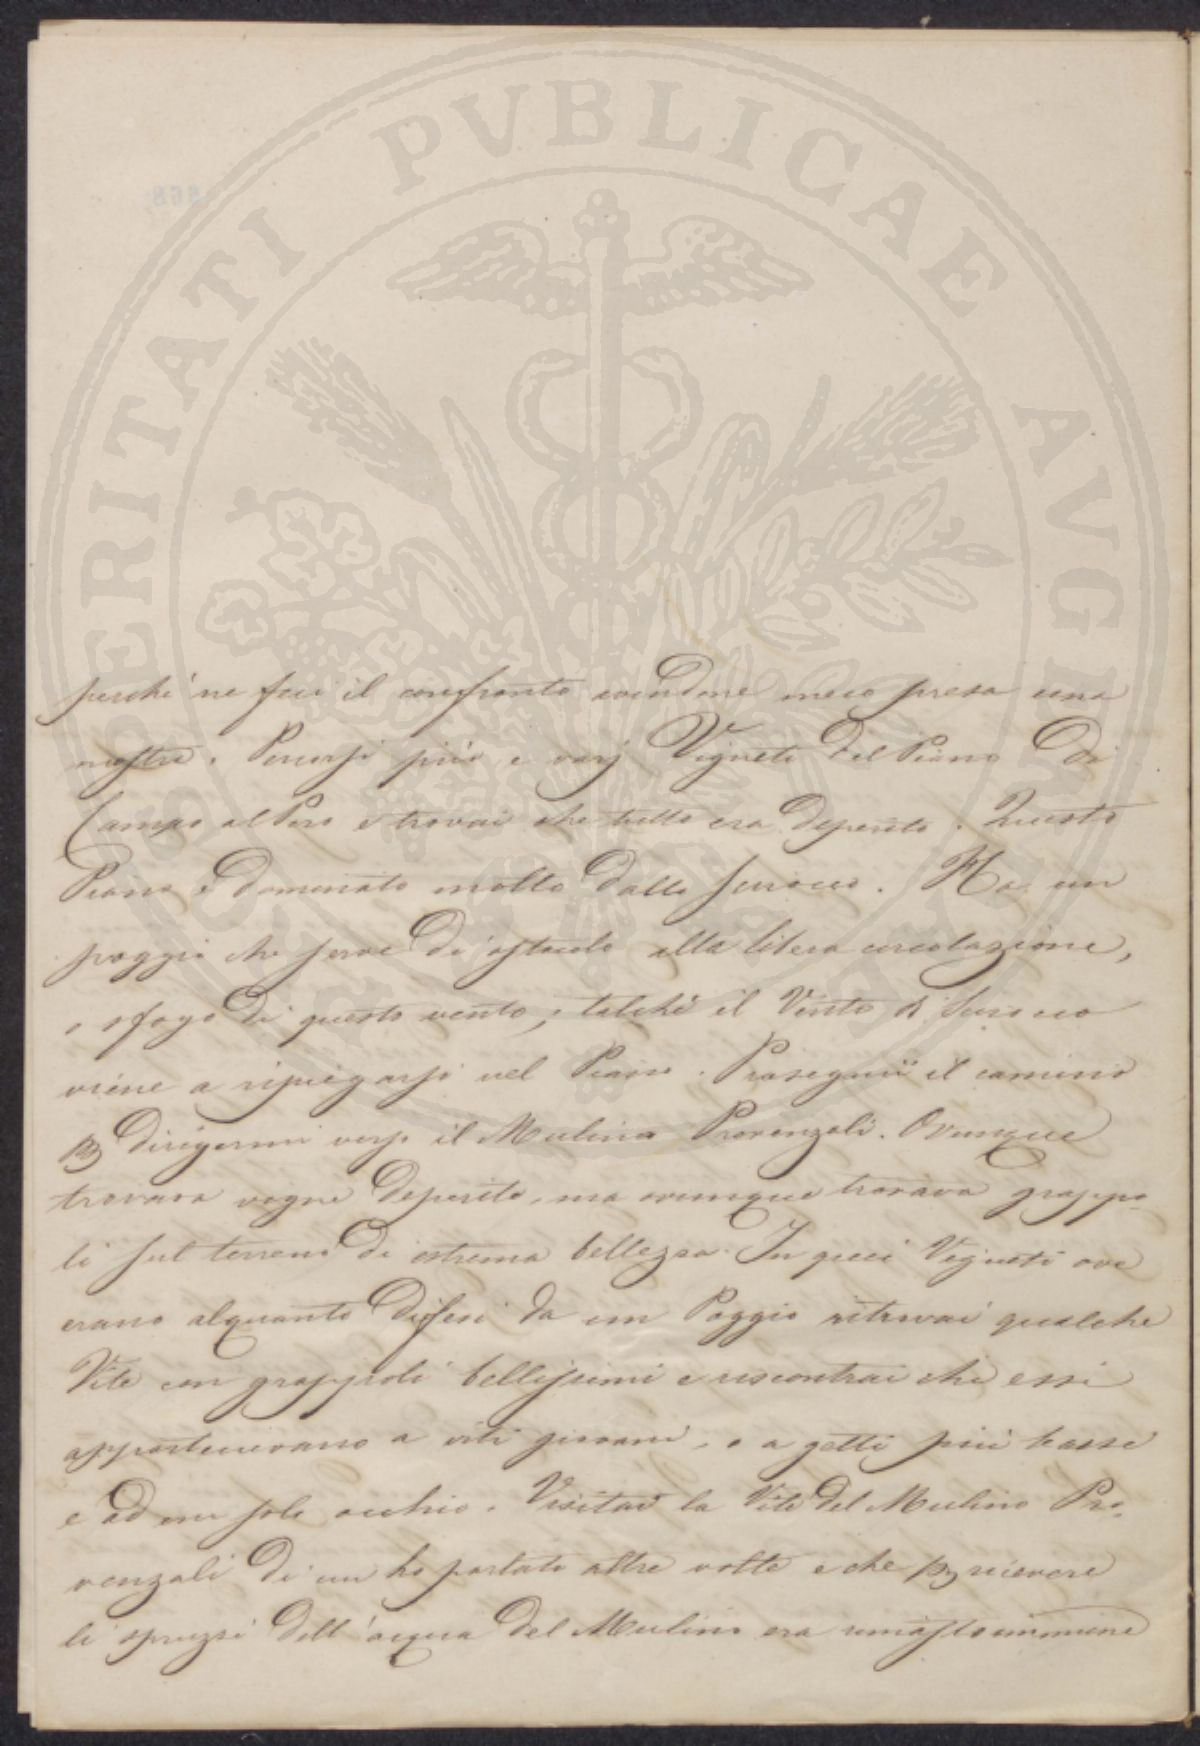 PROSPERITATI PVBLICAE AVGENDAE
868
perchè ne feci il confronto avendone meco presa una
mostra. Percorsi più e varj Vigneti del Piano Di
Campo al Pero e trovai che tutto era Deperito. Questo
Piano è Dominato molto Dallo Scirocco. Ha un
poggio che serve Di ostacolo alla libera circolazione,
e sfogo Di questo vento; talchè il Vento di Scirocco
viene a ripiegarsi nel Piano. Proseguii il camino
per Dirigermi verso il Mulino Provenzali. Ovunque
trovava vigne Deperite, ma ovunque trovava grappo
li sul terreno Di estrema bellezza. In quei Vigneti ove
erano alquanto Difesi da un Poggio ritrovai qualche
Vite con grappoli bellissimi e riscontrai che essi
appartenevano a viti giovani, o a getti più bassi
e ad un solo occhio. Visitai la Vite Del Mulino Pro-
venzali Di cui ho parlato altre volte e che per ricevere
li spruzzi Dell'acqua Del Mulino era rimasta immune